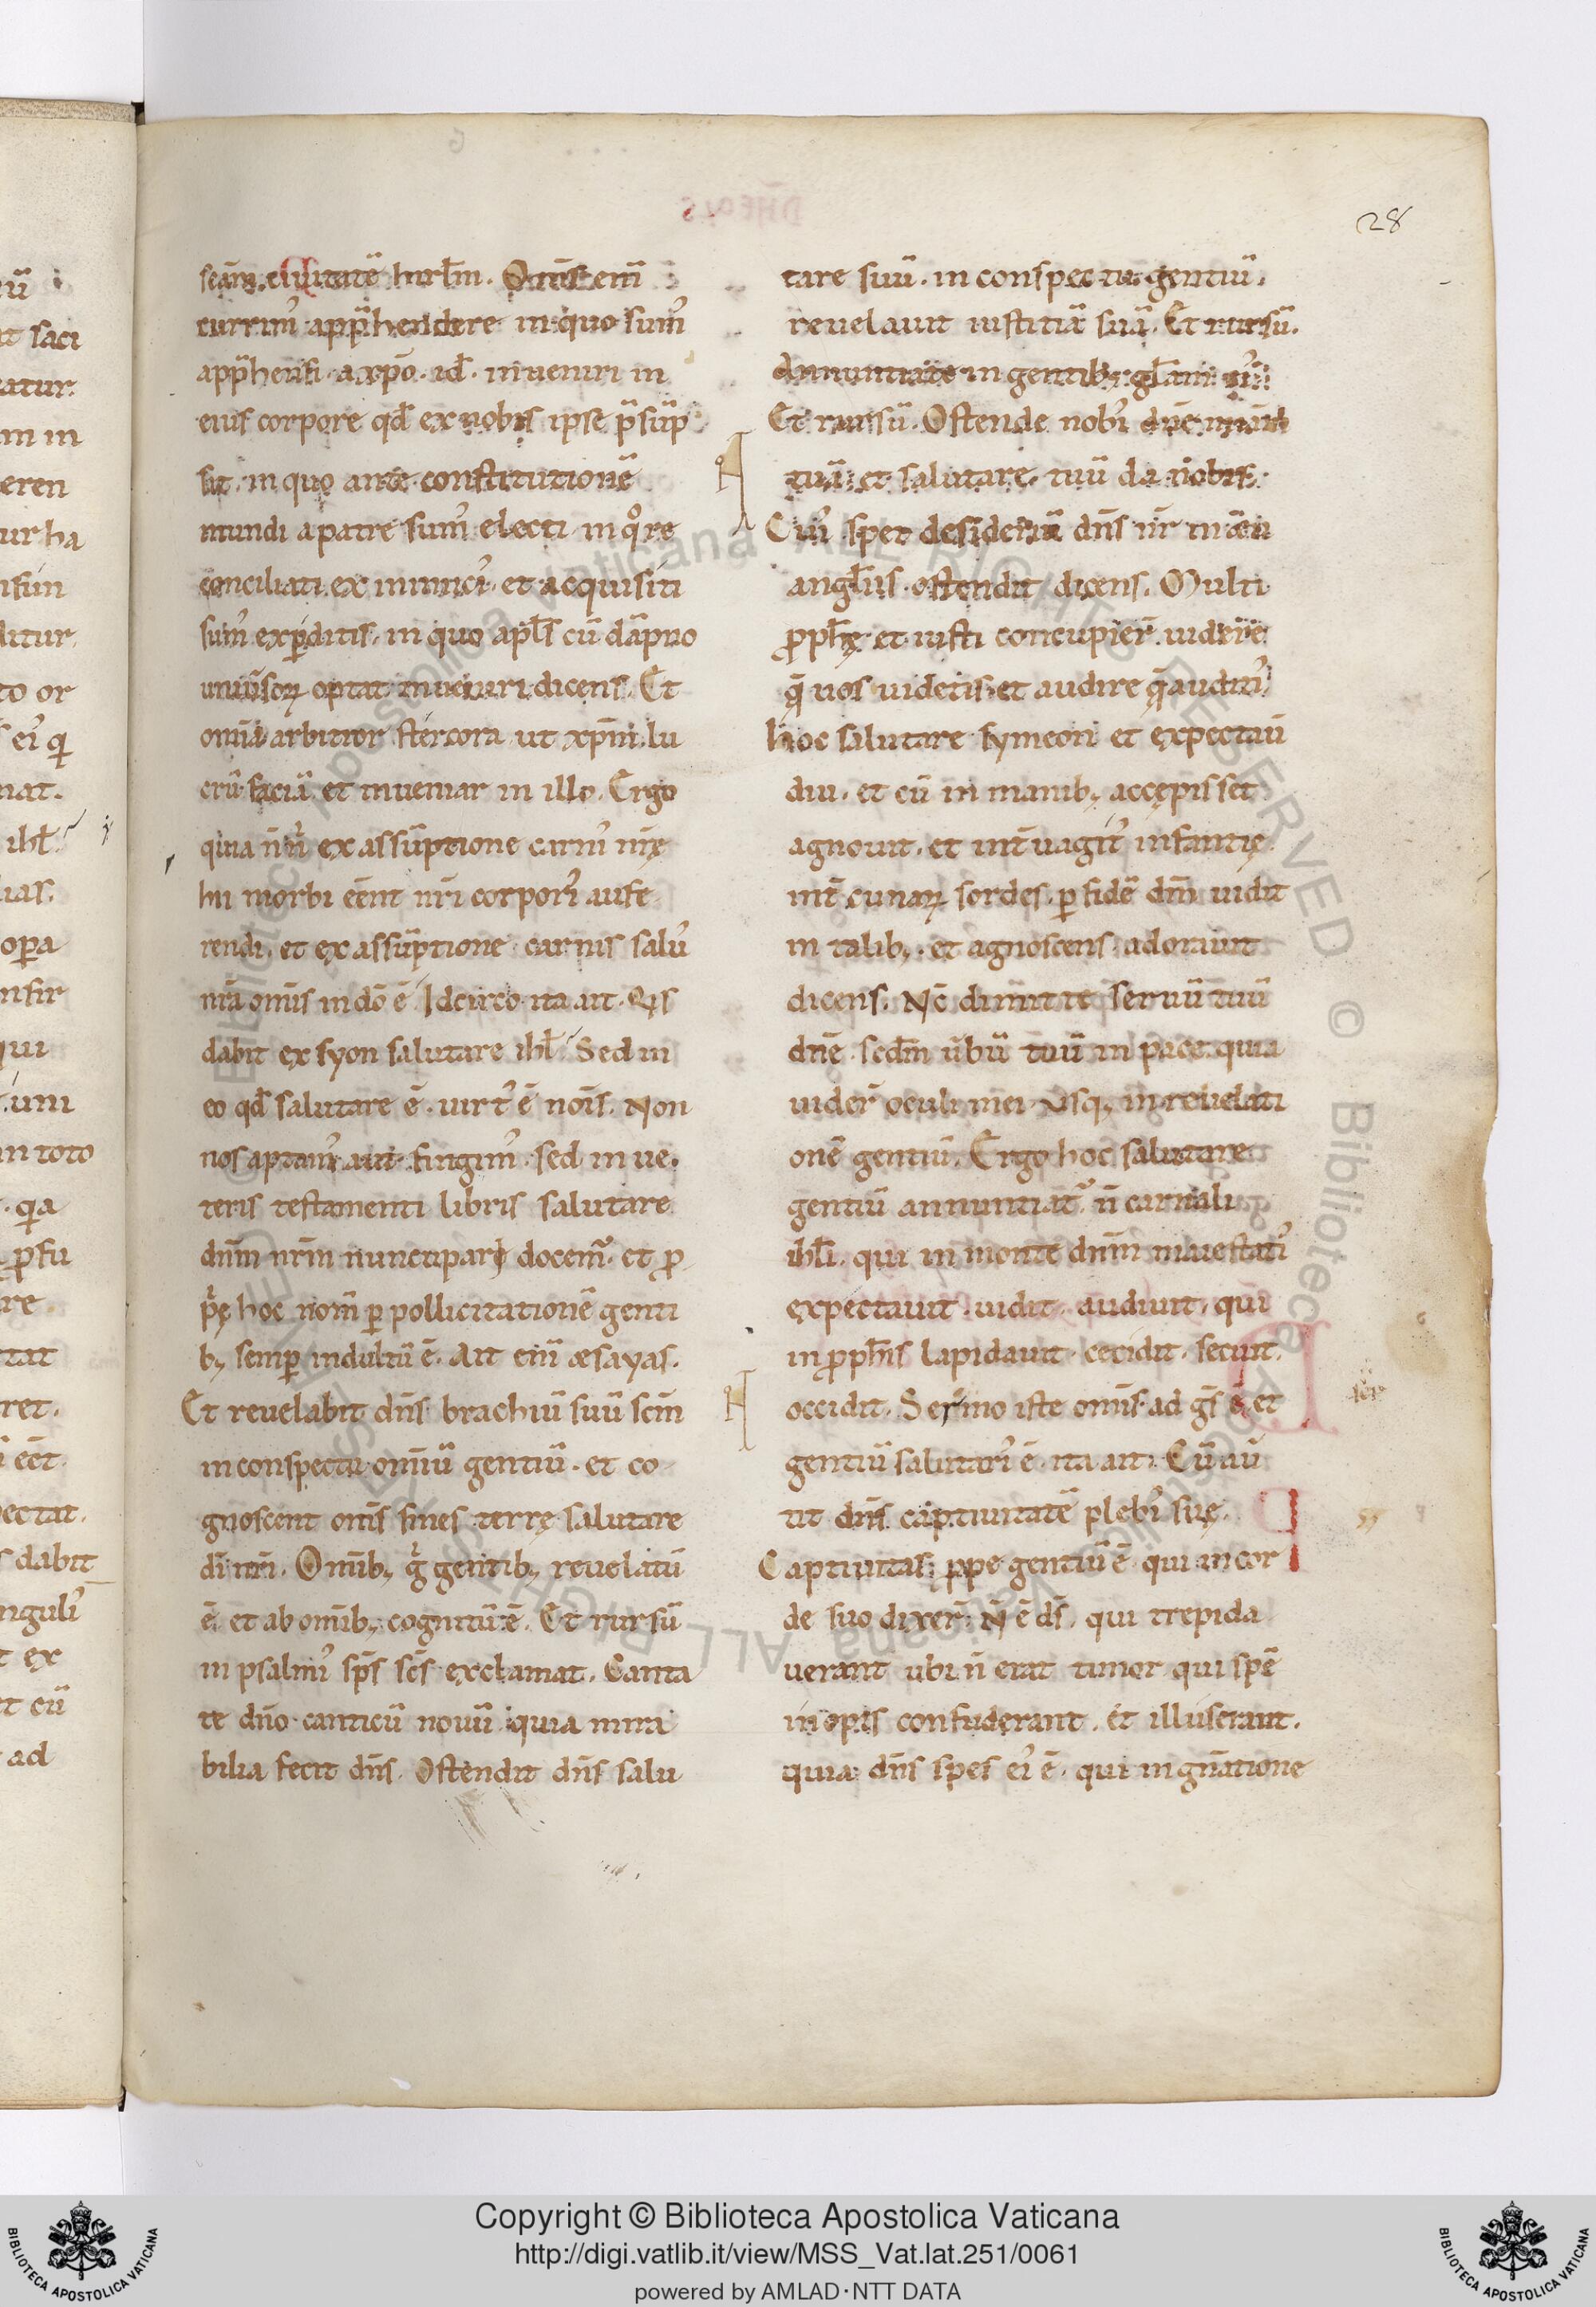 28
scam ciuitatē hierl̄m. Om̄s eni̅
currim᾽ app̄hendere in quo sum᾽
app̄hensi a xp̄o. id̄. inueniri in
eius corpore qd̄ ex nobis ipse p̄sūp
sit. in quo ante constitutionē
mundi a patre sum᾽ electi. in qͦ re
conciliati ex inimicı᾽ et acquisiti
sum᾽ exꝑditis. in quo apl̄s cū dāpno
uniūsoꝝ optat inueniri dicens. Et
omīa arbitror stercora ut xp̄m lu
crū faciā et inueniar in illo. Ergo
quia
ex assūptione carnı᾽ nr̄ę
hii morbi eēnt nr̄i corporı᾽ aufe
rendi. et ex assūptione carnis salu᾽
nr̄a om̄is in dō ē. Idcirco ita ait. Qis
dabit ex syon salutare isrl̄. Sed in
eo qd̄ salutare ē. uirt᾽ ē noīs. Non
nos aptam᾽ aut fingim᾽. sed in ue
teris testamenti libris salutare
dn̄m nr̄m nuncupari docem᾽. et ꝓ
hoc nom̄ ꝑ pollicitationē genti
bꝫ semꝑ indultū ē. Ait enī æsayas.
Et reuelabit dn̄s brachiū suū sc̄m
in conspectu omīū gentiū. et co
gnoscent om̄s fines terrę salutare
dī nr̄i. Omībꝫ gͦ gentibꝫ reuelatū
ē. et ab omībꝫ cognitū ē. Et rursū
in psalmı᾽ sp̄s sc̄s exclamat. Canta
te dn̄o canticū nouū quia mira
bilia fecit dn̄s. Ostendit dn̄s salu
tare suū. in conspectu gentiū.
reuelauit iustitiā suā. Et rursū.
Annuntiate in gentibꝫ gl̄am eı᾽.
Et rursū. Ostende nobı᾽ dn̄e mīam
tuā. et salutare tuū da nobis.
Cuı᾽ spei desideriū dn̄s nr̄ in
euangl̄iis ostendit dicens. Multi
ꝓph̄ę et iusti concupier̄ uidere
q̄ uos uidetis. et audire q̄ auditı᾽.
hoc salutare symeon et expectauˉ
diu. et cū in manibꝫ accepisset
agnouit. et int̄ uagit᾽ infantię
int̄ cunaꝝ sordes. ꝑ fidē dm̄ uidit
in talibꝫ. et agnoscens adorauit
dicens. Nc̄ dimittit seruū tuū
dn̄e scdm̄ ūbū tuū in pace. quia
uider̄ oculi mei. Usqꝫ in reuelati
onē gentiū. Ergo hoc salutare
gentiū annuntiat᾽. n̄ carnali
isrl̄i. qui in monte dn̄m maiestatı᾽
expectauit. uidit. audiuit. qui
in ꝓph̄is lapidauit. cecidit. secuit.
occidit. Sermo iste om̄is ad gs̄ ē. et
gentiū salutarı᾽ ē. ita ait. Cū aū
tit dn̄s captiuitatē plebı᾽ suę.
Captiuitas ꝓpe gentiū ē. qui in cor
de suo dixer̄. N̄ ē ds̄. qui trepida
uerant ubi n̄ erat timor. qui spē
inopis confuderant. et illuserant.
quia dn̄s spes eı᾽ ē. qui in gn̄atione
Copyright © Biblioteca Apostolica Vaticana
http://digi.vatlib.it/view/MSS_Vat.lat.251/0061
powered by AMLAD·NTT DATA